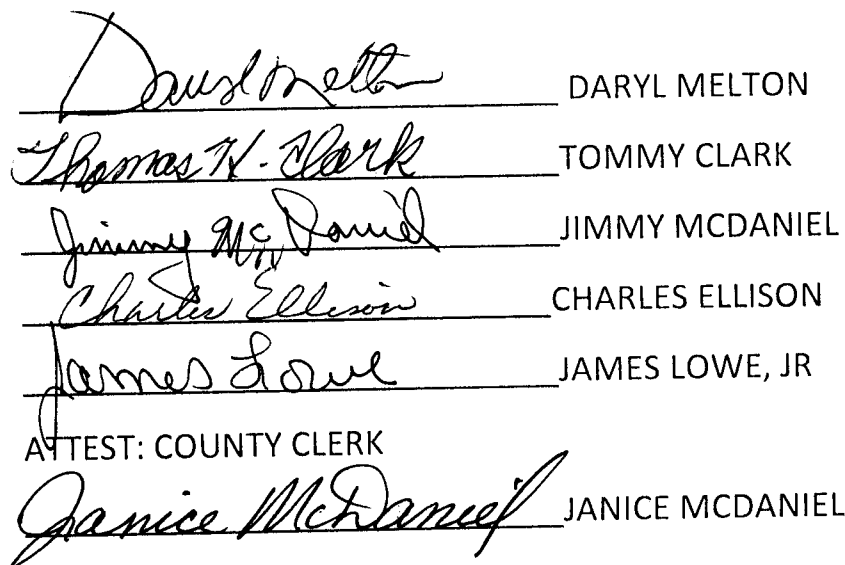 Daryl Melton DARYL MELTON
Thomas K. Clark TOMMY CLARK
Jimmy McDaniel JIMMY MCDANIEL
Charles Ellison CHARLES ELLISON
James Lowe JAMES LOWE, JR
ATTEST: COUNTY CLERK
Janice McDaniel JANICE MCDANIEL